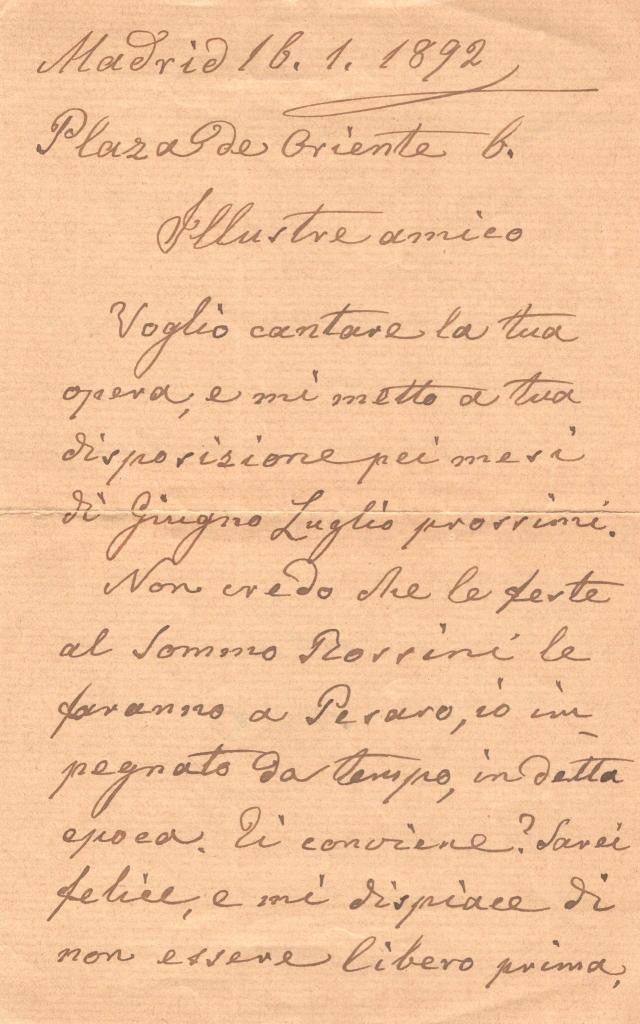 Madrid 16. 1. 1892
Plaza de Oriente 6.
Illustre amico
Voglio cantare la tua
opera, e mi metto a tua
disposizione pei mesi
di Giugno Luglio prossimi.
Non credo che le feste
al Sommo Rossini le
faranno a Pesaro, io im-
pegnato da tempo, in detta
epoca. Ti conviene? Sarei
felice, e mi dispiace di
non essere libero prima,